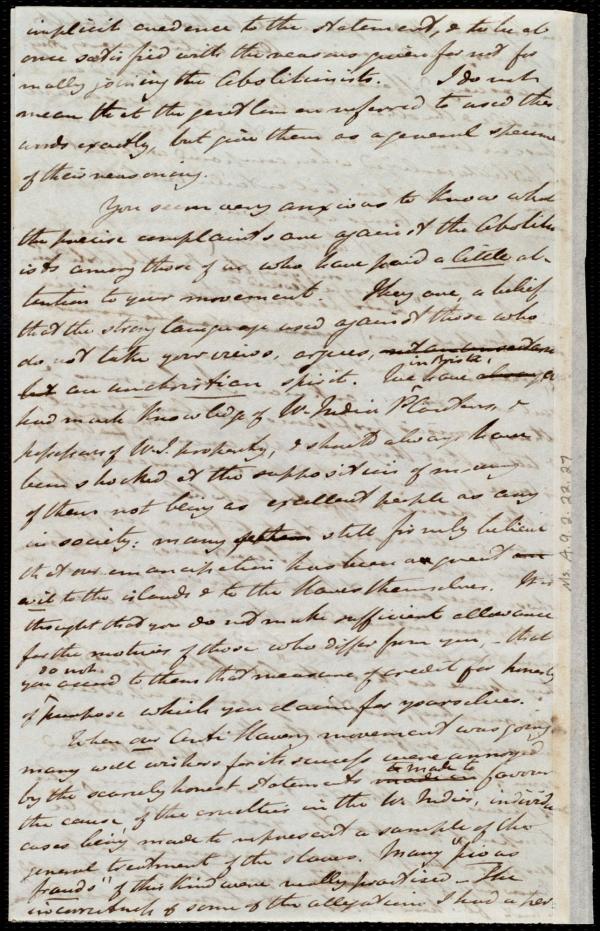 implicit credence to the statement, & to be at
once satisfied with the reasons given for not for
mally joining the Abolitionists. I do not
mean that the gentlemen referred to used these
words exactly, but give them as a general specimen
of their reasoning.
You seem very anxious to know what
the precise complaints are against the Abolition
ists among those of us who have paid a little at-
tention to your movement. They are, a belief
that the strong language used against those who
do not take your views, argues,
but an unchristian spirit. We have in Bristol,
had much knowledge of W. India Planters, &
possessors of W.I. property, & should always have
been shocked at the supposition of many
of them not being as excellent people as any
in society: many of them still firmly believe
that our emancipation has been a great
evil to the islands & to the slaves themselves. It is
thought that you do not make sufficient allowance
for the motives of those who differ from you, - that
you do not accord to them that measure of credit for honesty
of purpose which you claim for yourselves.
When our Anti Slavery movement was going
many well wishers for its success were annoyed
by the scarcely honest statements made to favour
the cause of the cruelties in the W. Indies, individual
cases being made to represent a sample of the
general treatment of the slaves. Many "pious
frauds" of this kind were really practised - The
incorrectness of some of the allegations I had a per
Ms. A.9.2.22.27